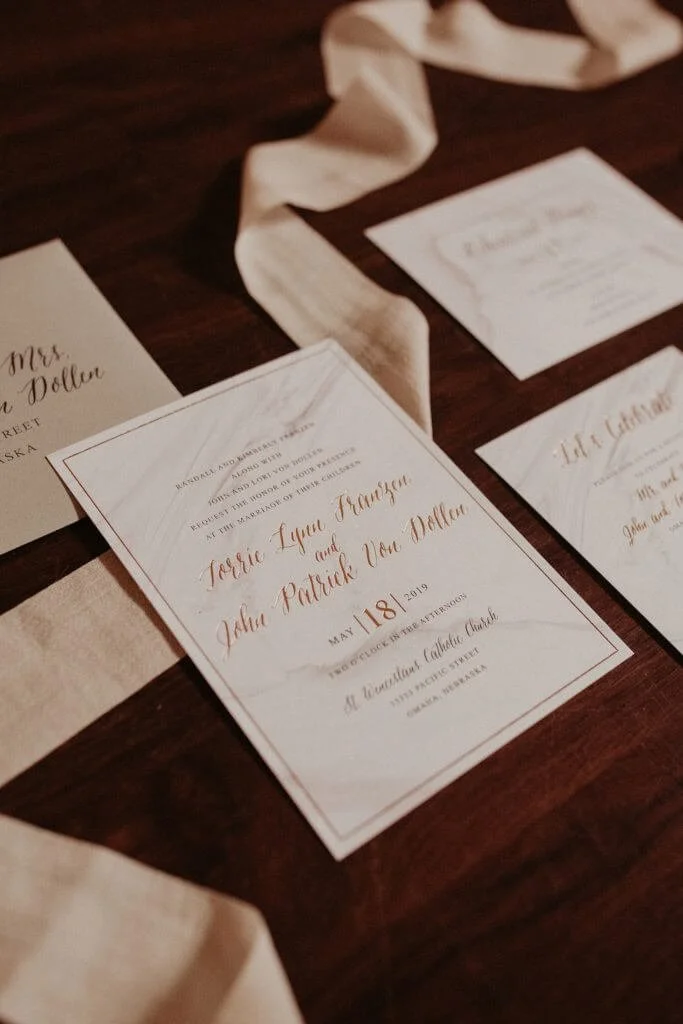 Mrs.
Von Dollen
REET
ASKA
RANDALL AND KIMBERLY FRANZEN
ALONG WITH
JOHN AND LORI VON DOLLEN
REQUEST THE HONOR OF YOUR PRESENCE
AT THE MARRIAGE OF THEIR CHILDREN
Torrie Lynn Franzen
and
John Patrick Von Dollen
MAY |18| 2019
TWO O'CLOCK IN THE AFTERNOON
St. Wenceslaus Catholic Church
PACIFIC STREET
OMAHA, NEBRASKA
Rehearsal Dinner
Let's Celebrate
Mr. and
John and